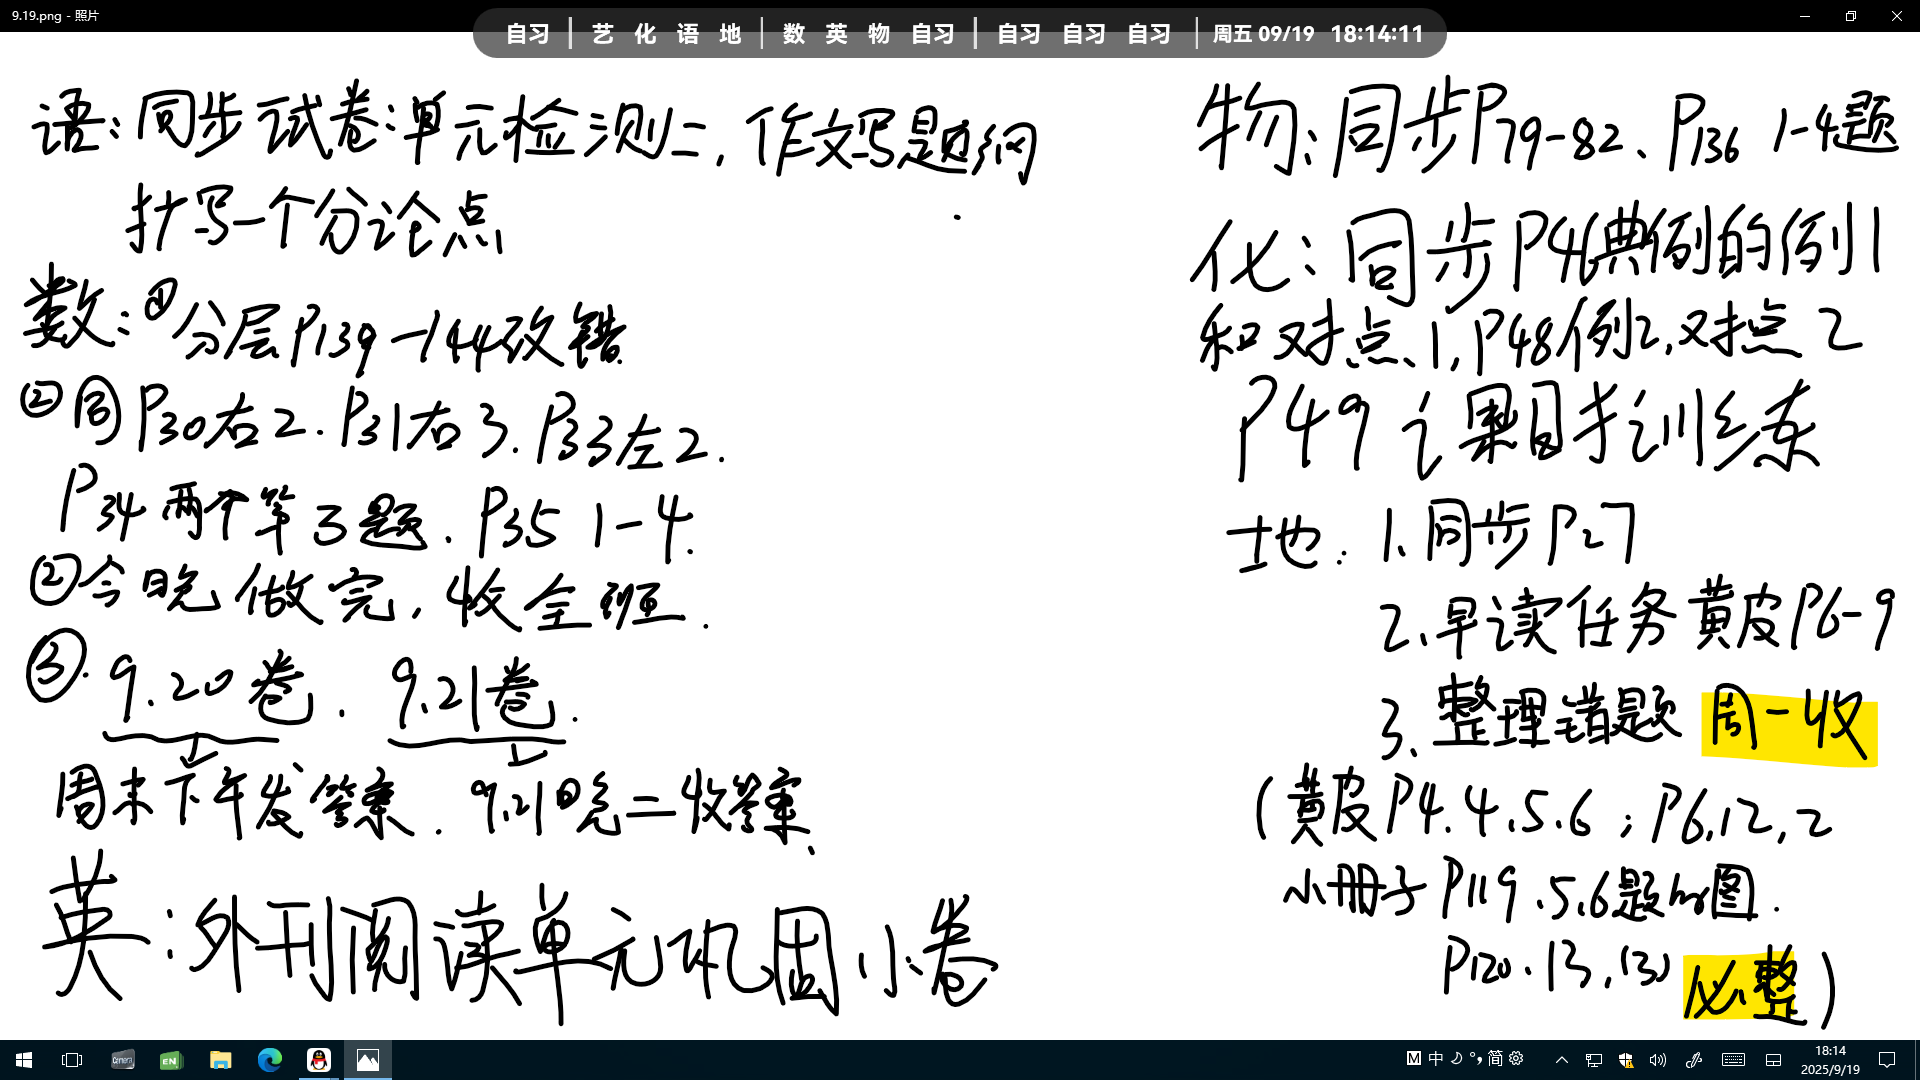 9.19.png - 照片
自习 | 艺 化 语 地 | 数 英 物 自习 | 自习 自习 自习 | 周五 09/19 18:14:11
语:同步试卷:单元检测二,作文写题纲
抄写一个分论点
数:①分层P139-144改错.
②同P30右2.P31右3.P33左2.
P34两个第3题.P35 1-4.
②今晚做完,收全班.
③.9.20卷.9.21卷.
周末下午发答案.9.21日晚二收答案.
英:外刊阅读单元巩固小卷
物:同步P79-82、P136 1-4题
化:同步P46典例的例1
和对点、1,P48例2,对点2
P49课时训练
地:1.同步P27
2.早读任务黄皮P6-9
3.整理错题 周一收
(黄皮P4.4.5.6;P6.12.2
小册子P119.5.6题的图.
P120.13.(3)必整)
M 中 简
18:14
2025/9/19